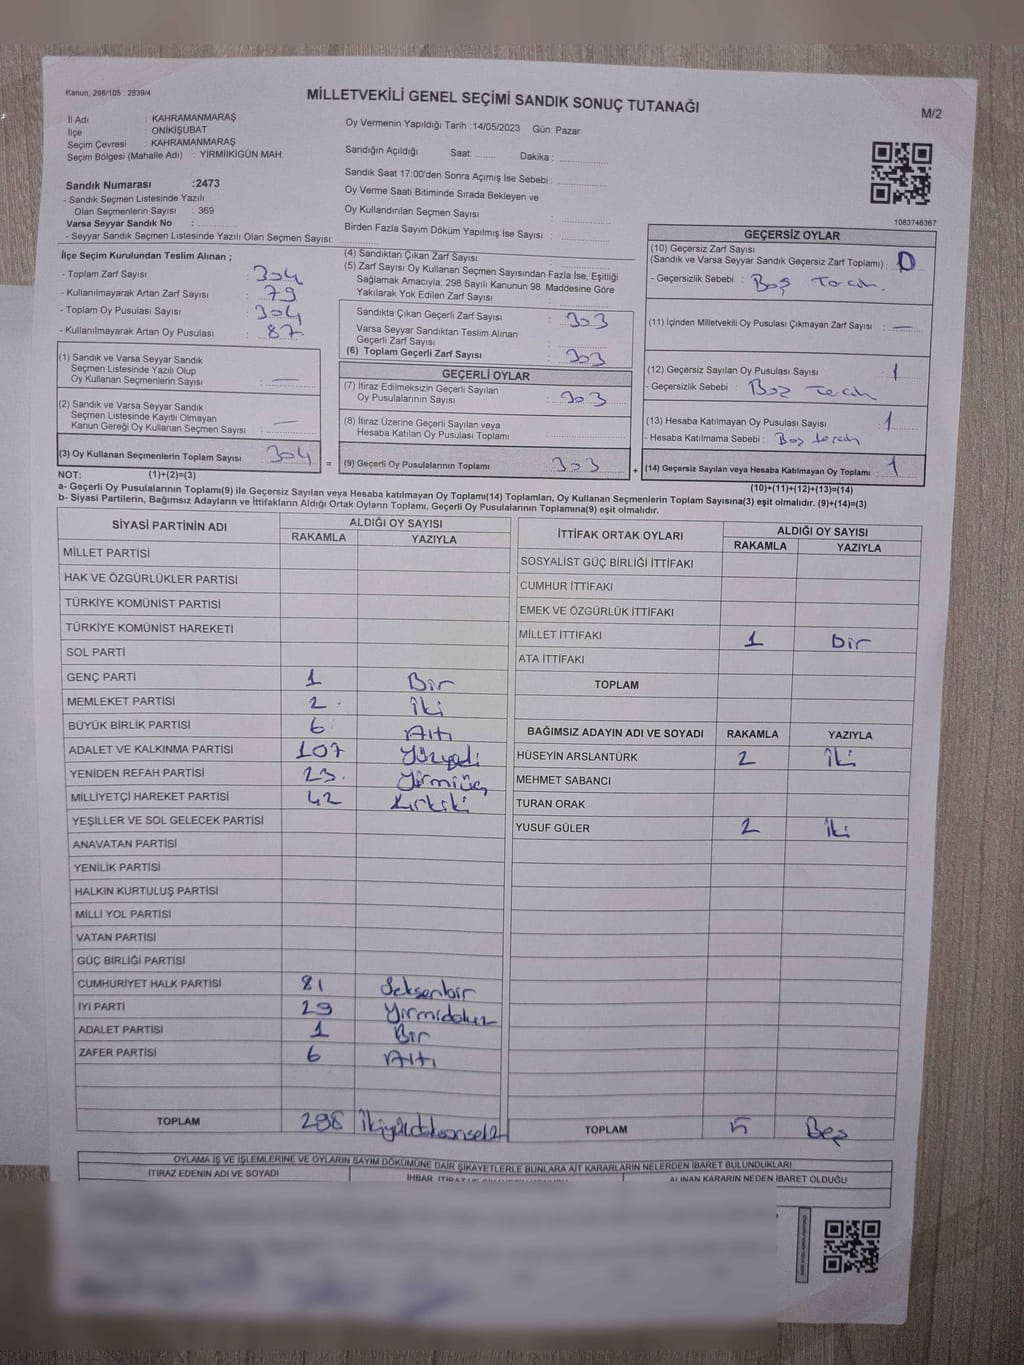 Kanun: 298/105 . 2839/4
MİLLETVEKİLİ GENEL SEÇİMİ SANDIK SONUÇ TUTANAĞI
M/2
İl Adı : KAHRAMANMARAŞ
İlçe : ONİKİŞUBAT
Seçim Çevresi : KAHRAMANMARAŞ
Seçim Bölgesi (Mahalle Adı) : YİRMİİKİGÜN MAH.
Sandık Numarası :2473
- Sandık Seçmen Listesinde Yazılı
Olan Seçmenlerin Sayısı : 369
Varsa Seyyar Sandık No :
- Seyyar Sandık Seçmen Listesinde Yazılı Olan Seçmen Sayısı:
Oy Vermenin Yapıldığı Tarih :14/05/2023 Gün: Pazar
Sandığın Açıldığı Saat: Dakika :
Sandık Saat 17:00'den Sonra Açımış İse Sebebi :
Oy Verme Saati Bitiminde Sırada Bekleyen ve
Oy Kullandırılan Seçmen Sayısı :
Birden Fazla Sayım Döküm Yapılmış İse Sayısı :
1083746367
İlçe Seçim Kurulundan Teslim Alınan ;
- Toplam Zarf Sayısı : 304
- Kullanılmayarak Artan Zarf Sayısı : 79
- Toplam Oy Pusulası Sayısı : 304
- Kullanılmayarak Artan Oy Pusulası : 87
(1) Sandık ve Varsa Seyyar Sandık
Seçmen Listesinde Yazılı Olup
Oy Kullanan Seçmenlerin Sayısı : —
(2) Sandık ve Varsa Seyyar Sandık
Seçmen Listesinde Kayıtlı Olmayan
Kanun Gereği Oy Kullanan Seçmen Sayısı : —
(3) Oy Kullanan Seçmenlerin Toplam Sayısı : 304
(4) Sandıktan Çıkan Zarf Sayısı :
(5) Zarf Sayısı Oy Kullanan Seçmen Sayısından Fazla İse, Eşitliği
Sağlamak Amacıyla; 298 Sayılı Kanunun 98. Maddesine Göre
Yakılarak Yok Edilen Zarf Sayısı :
Sandıkta Çıkan Geçerli Zarf Sayısı : 303
Varsa Seyyar Sandıktan Teslim Alınan
Geçerli Zarf Sayısı :
(6) Toplam Geçerli Zarf Sayısı : 303
GEÇERLİ OYLAR
(7) İtiraz Edilmeksizin Geçerli Sayılan
Oy Pusulalarının Sayısı : 303
(8) İtiraz Üzerine Geçerli Sayılan veya
Hesaba Katılan Oy Pusulası Toplamı :
= (9) Geçerli Oy Pusulalarının Toplamı : 303
GEÇERSİZ OYLAR
(10) Geçersiz Zarf Sayısı
(Sandık ve Varsa Seyyar Sandık Geçersiz Zarf Toplamı) : 0
- Geçersizlik Sebebi : Boş
(11) İçinden Milletvekili Oy Pusulası Çıkmayan Zarf Sayısı : —
(12) Geçersiz Sayılan Oy Pusulası Sayısı : 1
- Geçersizlik Sebebi : Boş
(13) Hesaba Katılmayan Oy Pusulası Sayısı : 1
- Hesaba Katılmama Sebebi : Boş
+ (14) Geçersiz Sayılan veya Hesaba Katılmayan Oy Toplamı : 1
NOT: (1)+(2)=(3)
(10)+(11)+(12)+(13)=(14)
a- Geçerli Oy Pusulalarının Toplamı(9) ile Geçersiz Sayılan veya Hesaba katılmayan Oy Toplamı(14) Toplamları, Oy Kullanan Seçmenlerin Toplam Sayısına(3) eşit olmalıdır. (9)+(14)=(3)
b- Siyasi Partilerin, Bağımsız Adayların ve İttifakların Aldığı Ortak Oyların Toplamı, Geçerli Oy Pusulalarının Toplamına(9) eşit olmalıdır.
SİYASİ PARTİNİN ADI ALDIĞI OY SAYISI
RAKAMLA YAZIYLA
MİLLET PARTİSİ
HAK VE ÖZGÜRLÜKLER PARTİSİ
TÜRKİYE KOMÜNİST PARTİSİ
TÜRKİYE KOMÜNİST HAREKETİ
SOL PARTİ
GENÇ PARTİ 1 Bir
MEMLEKET PARTİSİ 2 iki
BÜYÜK BİRLİK PARTİSİ 6 Altı
ADALET VE KALKINMA PARTİSİ 107 Yüzyedi
YENİDEN REFAH PARTİSİ 23 Yirmiüç
MİLLİYETÇİ HAREKET PARTİSİ 42 Kırkiki
YEŞİLLER VE SOL GELECEK PARTİSİ
ANAVATAN PARTİSİ
YENİLİK PARTİSİ
HALKIN KURTULUŞ PARTİSİ
MİLLİ YOL PARTİSİ
VATAN PARTİSİ
GÜÇ BİRLİĞİ PARTİSİ
CUMHURİYET HALK PARTİSİ 81 Seksenbir
İYİ PARTİ 29 Yirmidokuz
ADALET PARTİSİ 1 Bir
ZAFER PARTİSİ 6 Altı
TOPLAM 298 İkiyüzdoksansekiz
İTTİFAK ORTAK OYLARI ALDIĞI OY SAYISI
RAKAMLA YAZIYLA
SOSYALİST GÜÇ BİRLİĞİ İTTİFAKI
CUMHUR İTTİFAKI
EMEK VE ÖZGÜRLÜK İTTİFAKI
MİLLET İTTİFAKI 1 bir
ATA İTTİFAKI
TOPLAM
BAĞIMSIZ ADAYIN ADI VE SOYADI RAKAMLA YAZIYLA
HÜSEYİN ARSLANTÜRK 2 İki
MEHMET SABANCI
TURAN ORAK
YUSUF GÜLER 2 İki
TOPLAM 5 Beş
OYLAMA İŞ VE İŞLEMLERİNE VE OYLARIN SAYIM DÖKÜMÜNE DAİR ŞİKAYETLERLE BUNLARA AİT KARARLARIN NELERDEN İBARET BULUNDUKLARI
İTİRAZ EDENİN ADI VE SOYADI
ALINAN KARARIN NEDEN İBARET OLDUĞU